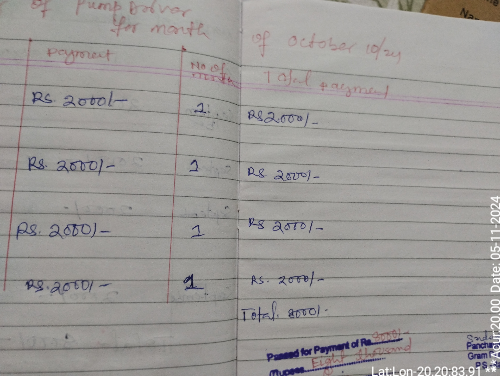 of pump Driver
for month
of October 10/24
payment
No of
month
Total payment
Rs 2000/-
1
Rs 2000/-
Rs. 2000/-
1
Rs 2000/-
Rs. 2000/-
1
Rs 2000/-
Rs. 2000/-
1
Rs. 2000/-
Total 8000/-
Passed for Payment of Rs. 8000/-
(Rupees Eight thousand
Gram
Lat:Lon-20.20:83.91
Date: 05-11-2024